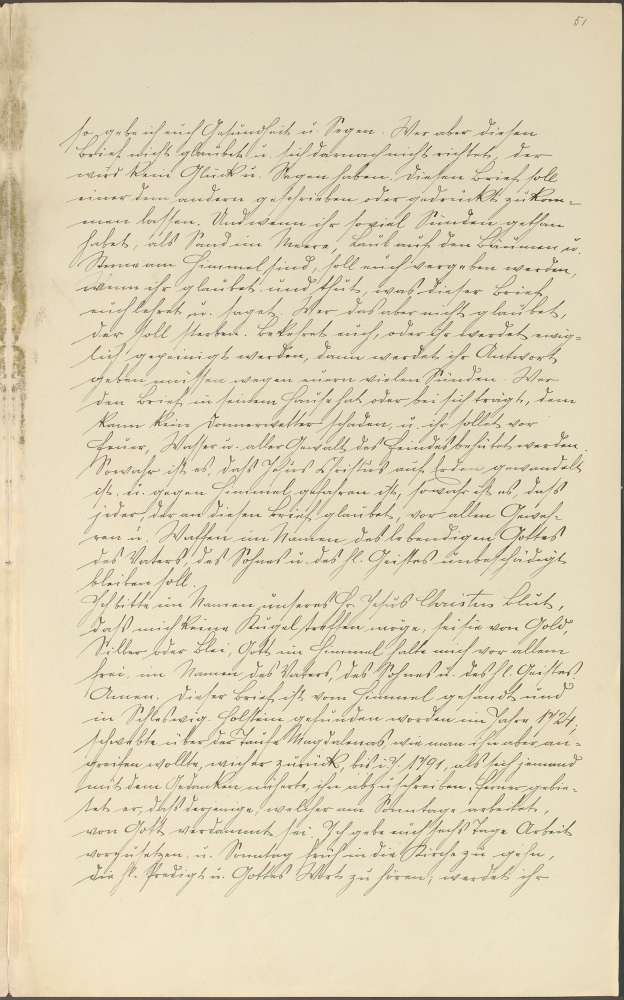 51
so gebe ich euch Gesundheit u. Segen. Wer aber diesen
Brief nicht glaubet u. sich darnach nicht richtet, der
wird kein Glück u. Segen haben. Diesen Brief soll
einer dem andern geschrieben oder gedruckt zukom-
men lassen. Und wenn ihr soviel Sünden gethan
habet, als Sand im Meere, Laub auf den Bäumen u.
Sterne am Himmel sind, soll euch vergeben werden,
wenn ihr glaubet und thut, was dieser Brief
euch lehret u. saget. Wer das aber nicht glaubet,
der soll sterben. Bekehret euch, oder ihr werdet ewig-
lich gepeinigt werden, dann werdet ihr Antwort
geben müssen wegen euern vielen Sünden. Wer
den Brief in seinem Hause hat oder bei sich trägt, dem
kann kein Donnerwetter schaden, u. ihr sollet vor
Feuer, Wasser u. aller Gewalt des Feindes behütet werden.
Sowahr ist es, daß Jesus Christus auf Erden gewandelt
ist u. gegen Himmel gefahren ist, sowahr ist es, daß
jeder, der an diesen Brief glaubet, vor allen Geweh-
ren u. Waffen im Namen des lebendigen Gottes
des Vaters, des Sohnes u. des hl. Geistes unbeschädigt
bleiben soll.
Ich bitte im Namen unseres Hr. Jesus Christus Blut,
daß mich keine Kugel treffen möge, sei sie von Gold,
Silber oder Blei, Gott im Himmel halte mich vor allem
frei, im Namen des Vaters, des Sohnes u. des hl. Geistes
Amen. Dieser Brief ist vom Himmel gesandt und
in Schleswig Holstein gefunden worden im Jahre 1724,
schwebte über der Taufe Magdalenas, wie man ihn aber an-
greifen wollte, wich er zurück, bis i. J. 1791, als sich jemand
mit dem Gedanken näherte, ihn abzuschreiben. Ferner gebie-
tet er, daß derjenige, welcher am Sonntage arbeitet,
von Gott verdammt sei. Ich gebe euch sechs Tage Arbeit
vorzusetzen u. Sonntag früh in die Kirche zu gehn,
die hl. Predigt u. Gottes Wort zu hören, werdet ihr